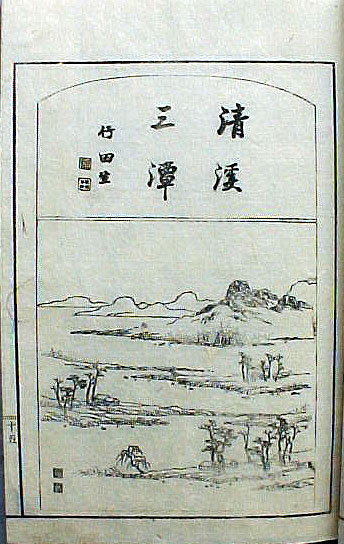 清溪
三潭
竹田生
十五